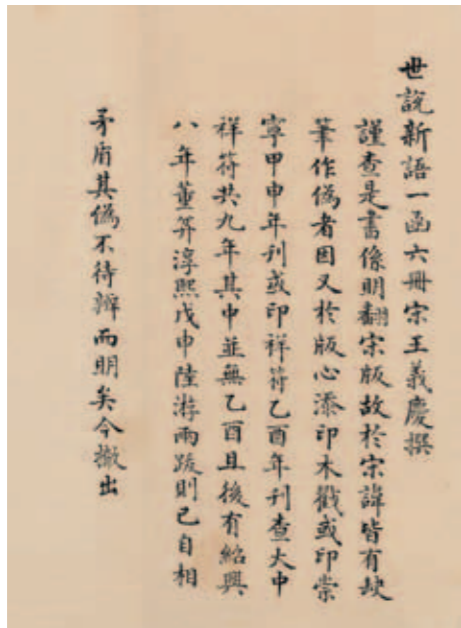 世說新語一函六冊宋王義慶撰
謹查是書係明翻宋版故於宋諱皆有缺
筆作偽者因又於版心添印木戳或印崇
寧甲申年刊或印祥符乙酉年刊查大中
祥符共九年其中並無乙酉且後有紹興
八年董弅淳熙戊申陸游兩跋則已自相
矛盾其偽不待辨而明矣今撤出